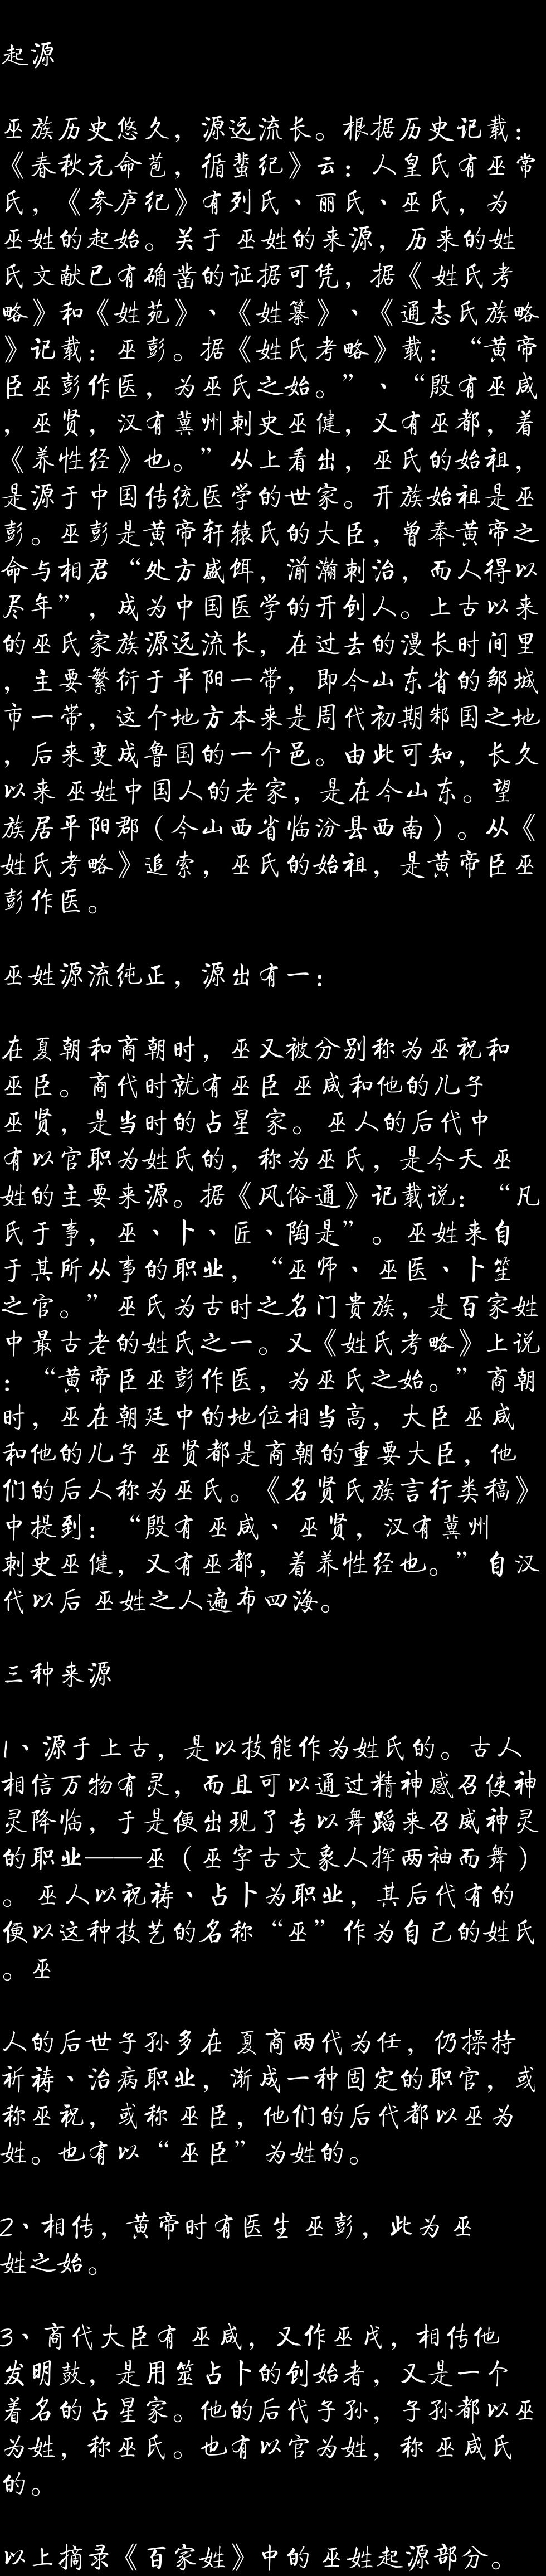 起源
巫族历史悠久，源远流长。根据历史记载：
《春秋元命苞，循蜚纪》云：人皇氏有巫常
氏，《参庐纪》有列氏、丽氏、巫氏，为
巫姓的起始。关于 巫姓的来源，历来的姓
氏文献已有确凿的证据可凭，据《 姓氏考
略》和《姓苑》、《姓纂》、《通志氏族略
》记载：巫彭。据《姓氏考略》载：“黄帝
臣巫彭作医，为巫氏之始。”、“殷有巫咸
，巫贤，汉有冀州刺史巫健，又有巫都，着
《养性经》也。”从上看出，巫氏的始祖，
是源于中国传统医学的世家。开族始祖是巫
彭。巫彭是黄帝轩辕氏的大臣，曾奉黄帝之
命与相君“处方盛饵，湔瀚刺治，而人得以
尽年”，成为中国医学的开创人。上古以来
的巫氏家族源远流长，在过去的漫长时间里
，主要繁衍于平阳一带，即今山东省的邹城
市一带，这个地方本来是周代初期邾国之地
，后来变成鲁国的一个邑。由此可知，长久
以来 巫姓中国人的老家，是在今山东。望
族居平阳郡（今山西省临汾县西南）。从《
姓氏考略》追索，巫氏的始祖，是黄帝臣巫
彭作医。
巫姓源流纯正，源出有一：
在夏朝和商朝时，巫又被分别称为巫祝和
巫臣。商代时就有巫臣 巫咸和他的儿子
巫贤，是当时的占星 家。 巫人的后代中
有以官职为姓氏的，称为巫氏，是今天 巫
姓的主要来源。据《风俗通》记载说：“凡
氏于事，巫、卜、匠、陶是”。 巫姓来自
于其所从事的职业，“巫师、 巫医、卜筮
之官。”巫氏为古时之名门贵族，是百家姓
中最古老的姓氏之一。又《姓氏考略》上说
：“黄帝臣巫彭作医，为巫氏之始。”商朝
时，巫在朝廷中的地位相当高，大臣 巫咸
和他的儿子 巫贤都是商朝的重要大臣，他
们的后人称为巫氏。《名贤氏族言行类稿》
中提到：“殷有 巫咸、 巫贤，汉有冀州
刺史巫健，又有巫都，着养性经也。”自汉
代以后 巫姓之人遍布四海。
三种来源
1、源于上古，是以技能作为姓氏的。古人
相信万物有灵，而且可以通过精神感召使神
灵降临，于是便出现了专以舞蹈来召威神灵
的职业——巫（巫字古文象人挥两袖而舞）
。 巫人以祝祷、占卜为职业，其后代有的
便以这种技艺的名称“巫”作为自己的姓氏
。巫
人的后世子孙多在 夏商两代为任，仍操持
祈祷、治病职业，渐成一种固定的职官，或
称巫祝，或称 巫臣，他们的后代都以巫为
姓。也有以“ 巫臣”为姓的。
2、相传，黄帝时有医生 巫彭，此为 巫
姓之始。
3、商代大臣有 巫咸，又作巫戊，相传他
发明鼓，是用筮占卜的创始者，又是一个
着名的占星家。他的后代子孙，子孙都以巫
为姓，称巫氏。也有以官为姓，称 巫咸氏
的。
以上摘录《百家姓》中的 巫姓起源部分。